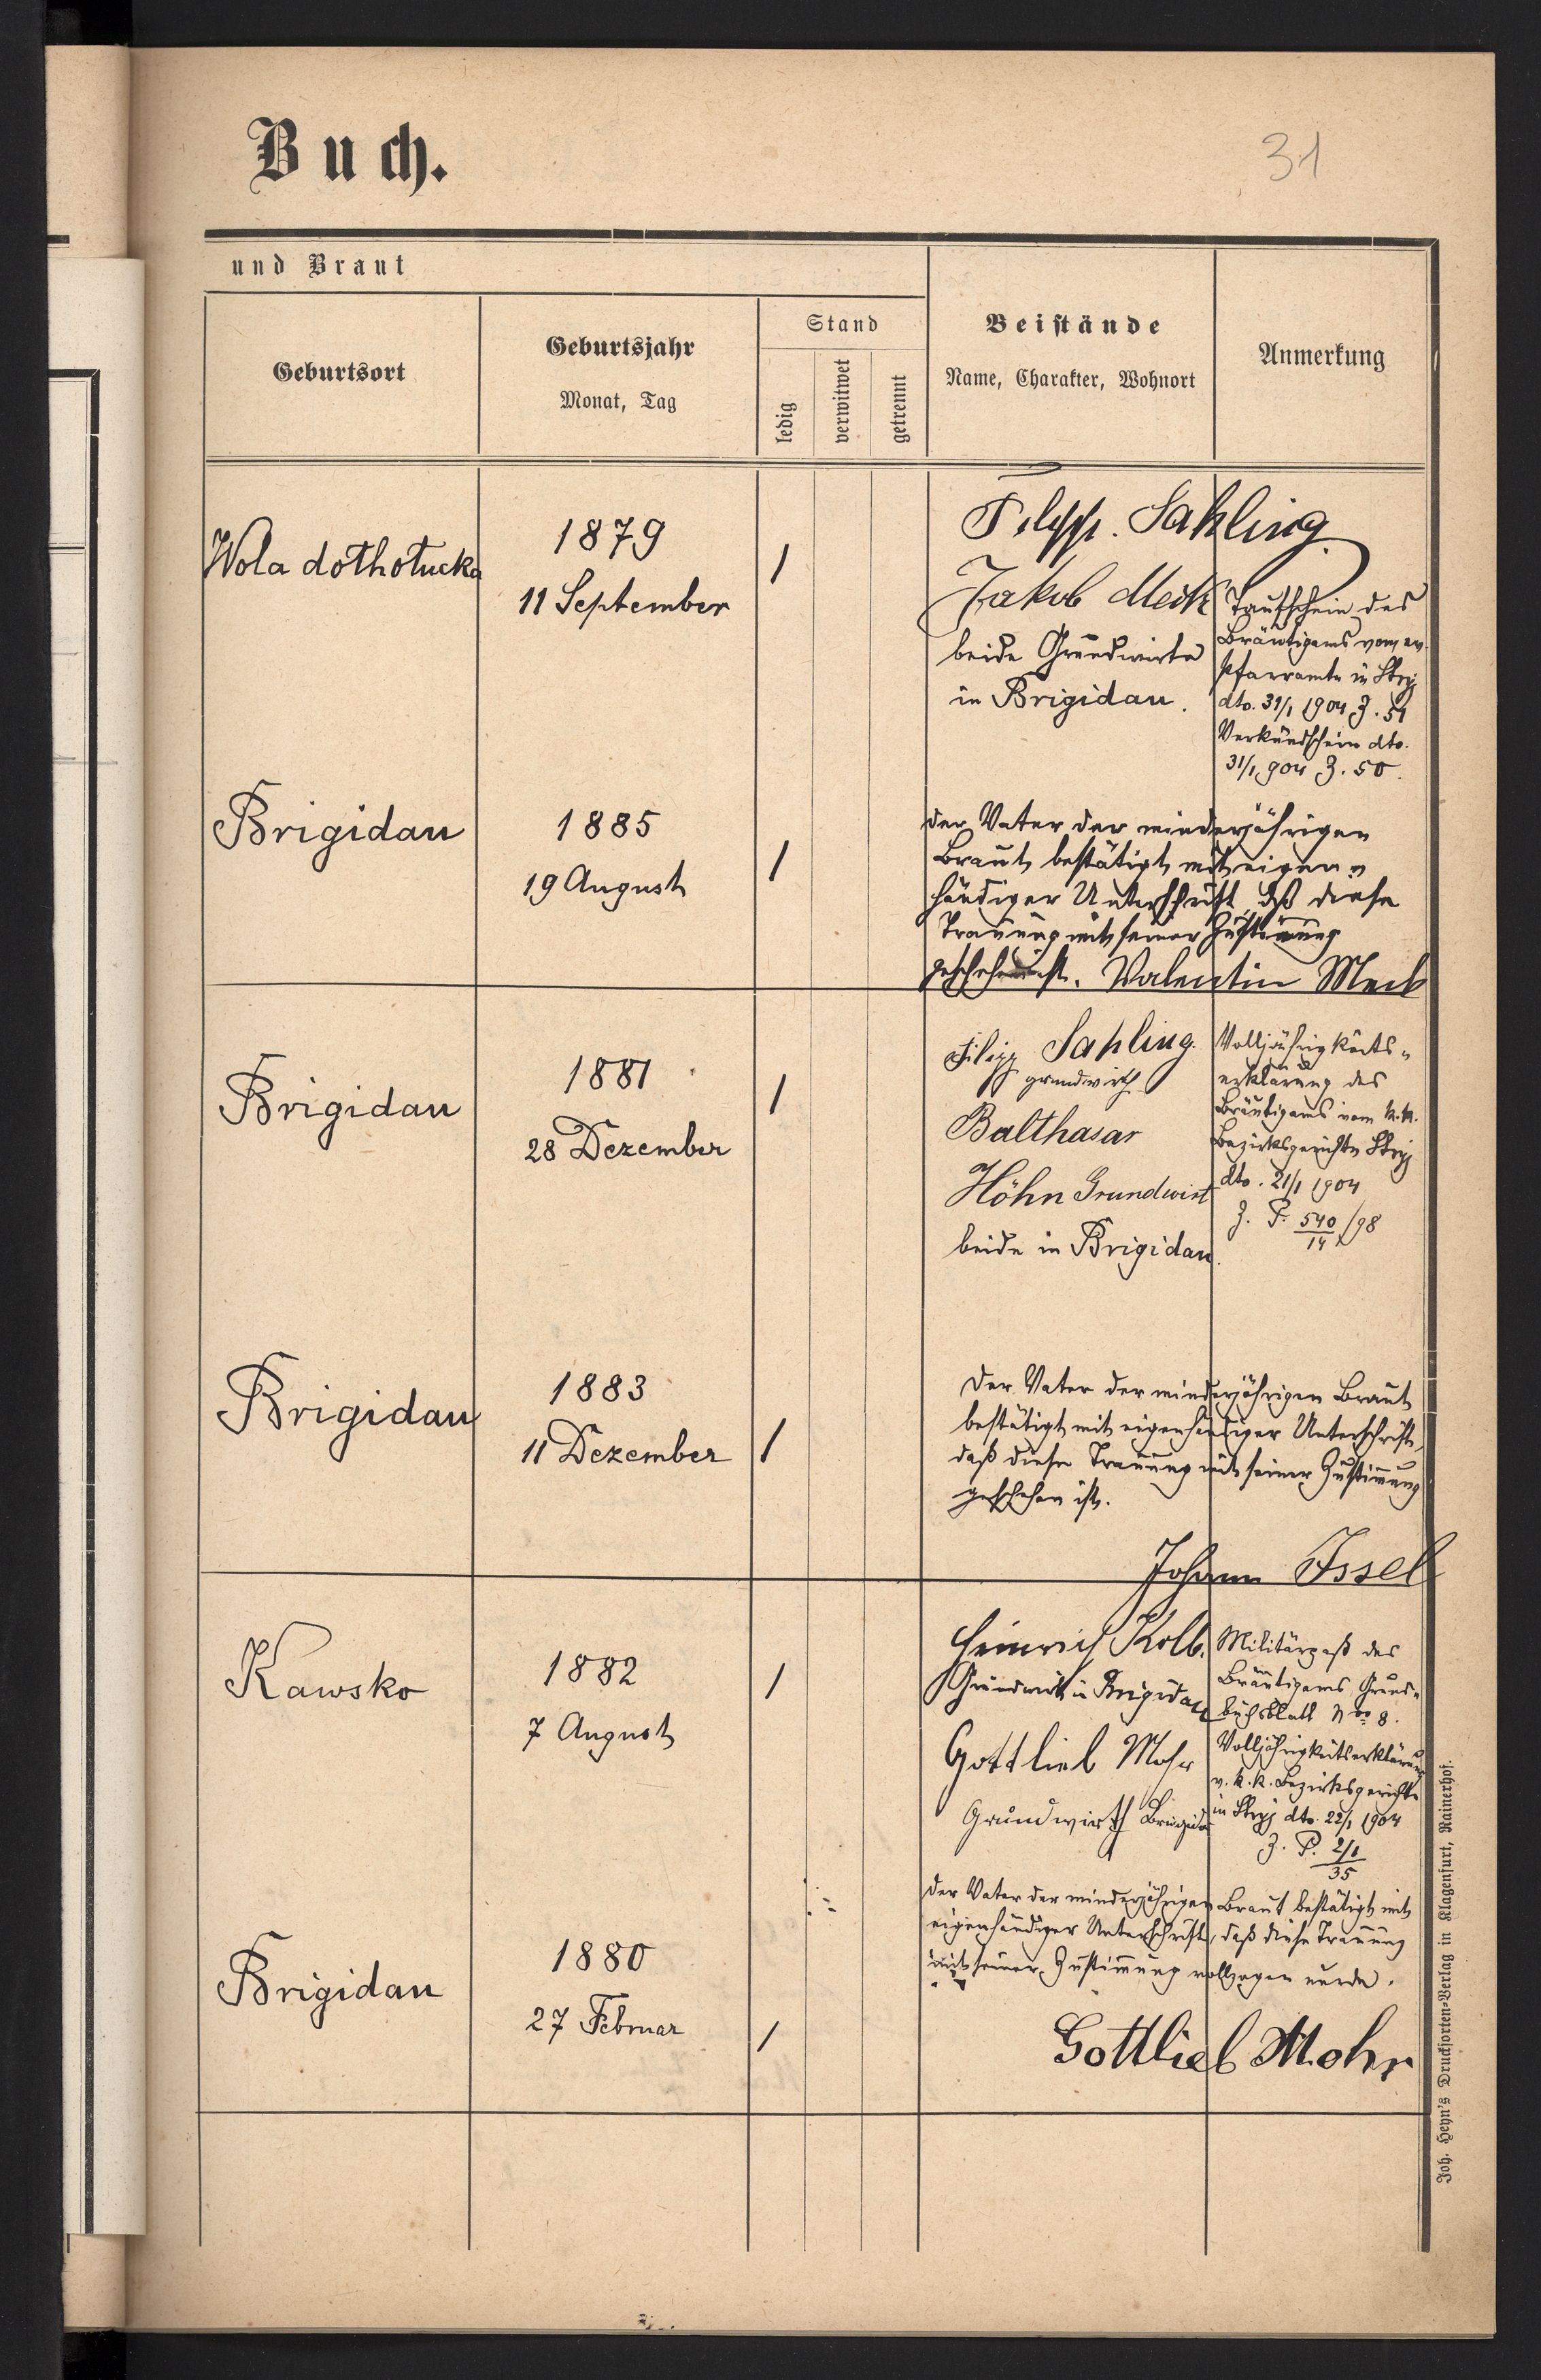 Buch.
31
und Braut
Geburtsort
Geburtsjahr
Monat, Tag
Stand
ledig
verwitwet
getrennt
Beistände
Name, Charakter, Wohnort
Anmerkung
Wola
1879
11 September
/
Sahling
Jakob Meck
beide Grundwirte
in Brigidau.
Taufschein des
Bräutigams vom ev.
Pfarramte in Stryj
dto. 31/1 1904 Z. 51
Verkündschein dto.
31/1 904 Z. 50.
Brigidau
1885
19 August
/
der Vater der minderjährigen
Braut bestätigt mit eigen-
händiger Unterschrift, daß diese
Trauung mit seiner Zustimmung
geschehen ist. Valentin Meck
Brigidau
1881
28 Dezember
/
Filipp Sahling.
grundwirth
Balthasar
Höhn Grundwirt
beide in Brigidau.
Volljährigkeits-
erklärung des
Bräutigams vom k.k.
Bezirksgerichte Stryj
dto. 21/1 1904
Z. P. 540/14 /98
Brigidau
1883
11 Dezember
/
Der Vater der minderjährigen Braut
bestätigt mit eigenhändiger Unterschrift,
daß diese Trauung mit seiner Zustimmung
geschehen ist.
Johann Issel
Kawsko
1882
7 August
/
Heinrich Kolb.
Grundwirth in Brigidau
Gottlieb Mohr
Grundwirth Brigidau
Militärpaß des
Bräutigams Grund-
buchsblatt Nro 8.
Volljährigkeitserklärung
v. k.k. Bezirksgerichte
in Stryj dto. 22/1 1904
Z. P. 2/1
35
Brigidau
1880
27 Februar
/
der Vater der minderjährigen Braut bestätigt mit
eigenhändiger Unterschrift, daß diese Trauung
mit seiner Zustimmung vollzogen wurde.
Gottlieb Mohr
Joh. Heyn's Drucksorten-Verlag in Klagenfurt, Rainerhof.